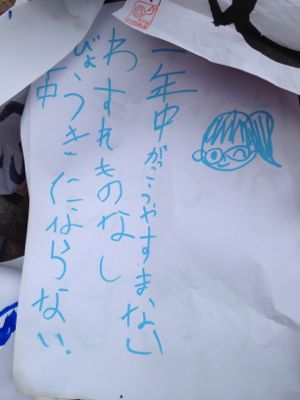 一年中がっこうやすまない
わすれものなし
びょうきにならない
中